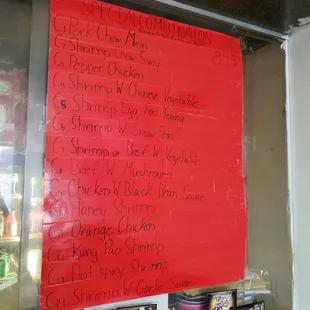 SPECIAL COMBINATION
C1 Pork Chow Mein
C2 Shrimp Chow Suey
C3 Pepper Chicken
C4 Shrimp W Chinese Vegetable
C5 Shrimp Egg Foo Young
C6 Shrimp W Snow Pea
C7 Shrimp or Beef W Vegetable
C8 Beef W Mushroom
C9 Chicken W Black Bean Sauce
C10 Honey Shrimp
C11 Orange Chicken
C12 Kung Pao Shrimp
C13 Hot spicy Shrimp
C14 Shrimp W Garlic Sauce